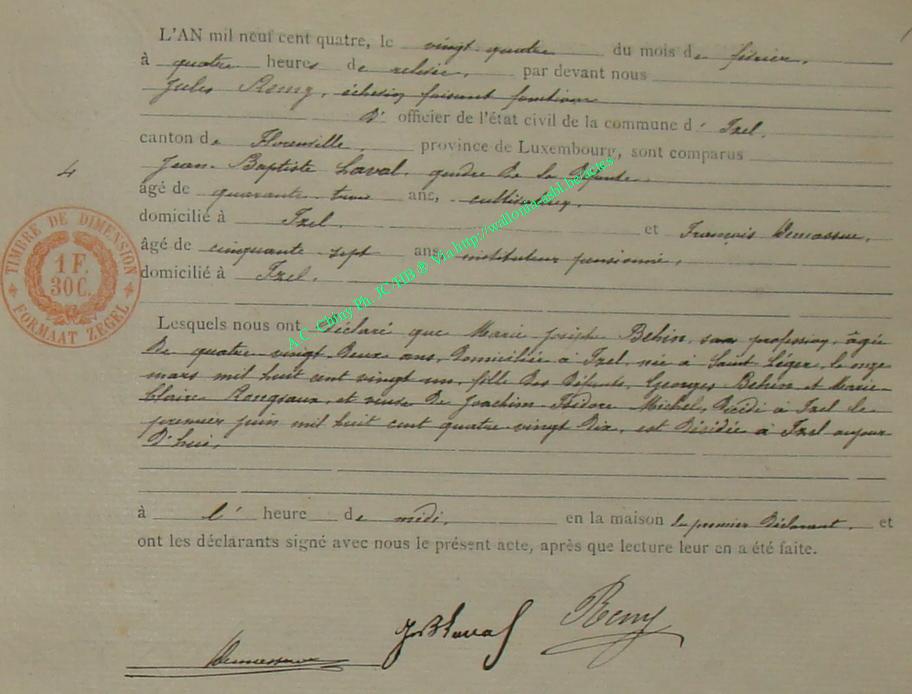 L'AN mil neuf cent quatre, le vingt quatre du mois de février,
à quatre heures de relevée, par devant nous
Jules Remy, échevin faisant fonctions
d' officier de l'état civil de la commune d' Izel,
canton de Florenville, province de Luxembourg, sont comparus
Jean Baptiste Laval, gendre de la défunte
4
âgé de quarante trois ans, cultivateur,
domicilié à Izel, et François
âgé de cinquante sept ans instituteur pensionné,
domicilié à Izel.
TIMBRE DE DIMENSION
1 F.
30 C.
FORMAAT ZEGEL
A.C. Chiny Ph. JC HB ® Via http://wallonia-asbl.be/actes
Lesquels nous ont déclaré que Marie Josèphe Behin, sans profession, âgée
de quatre vingt deux ans, domiciliée à Izel, née à Saint Léger, le onze
mars mil huit cent vingt un, fille des défunts, Georges Behin et Marie
Claire et veuve de Joachim Isidore Michel, décédé à Izel le
premier juin mil huit cent quatre vingt dix, est décédée à Izel aujour
d'hui,
à l' heure de midi, en la maison du premier déclarant, et
ont les déclarants signé avec nous le présent acte, après que lecture leur en a été faite.
JBLaval Remy